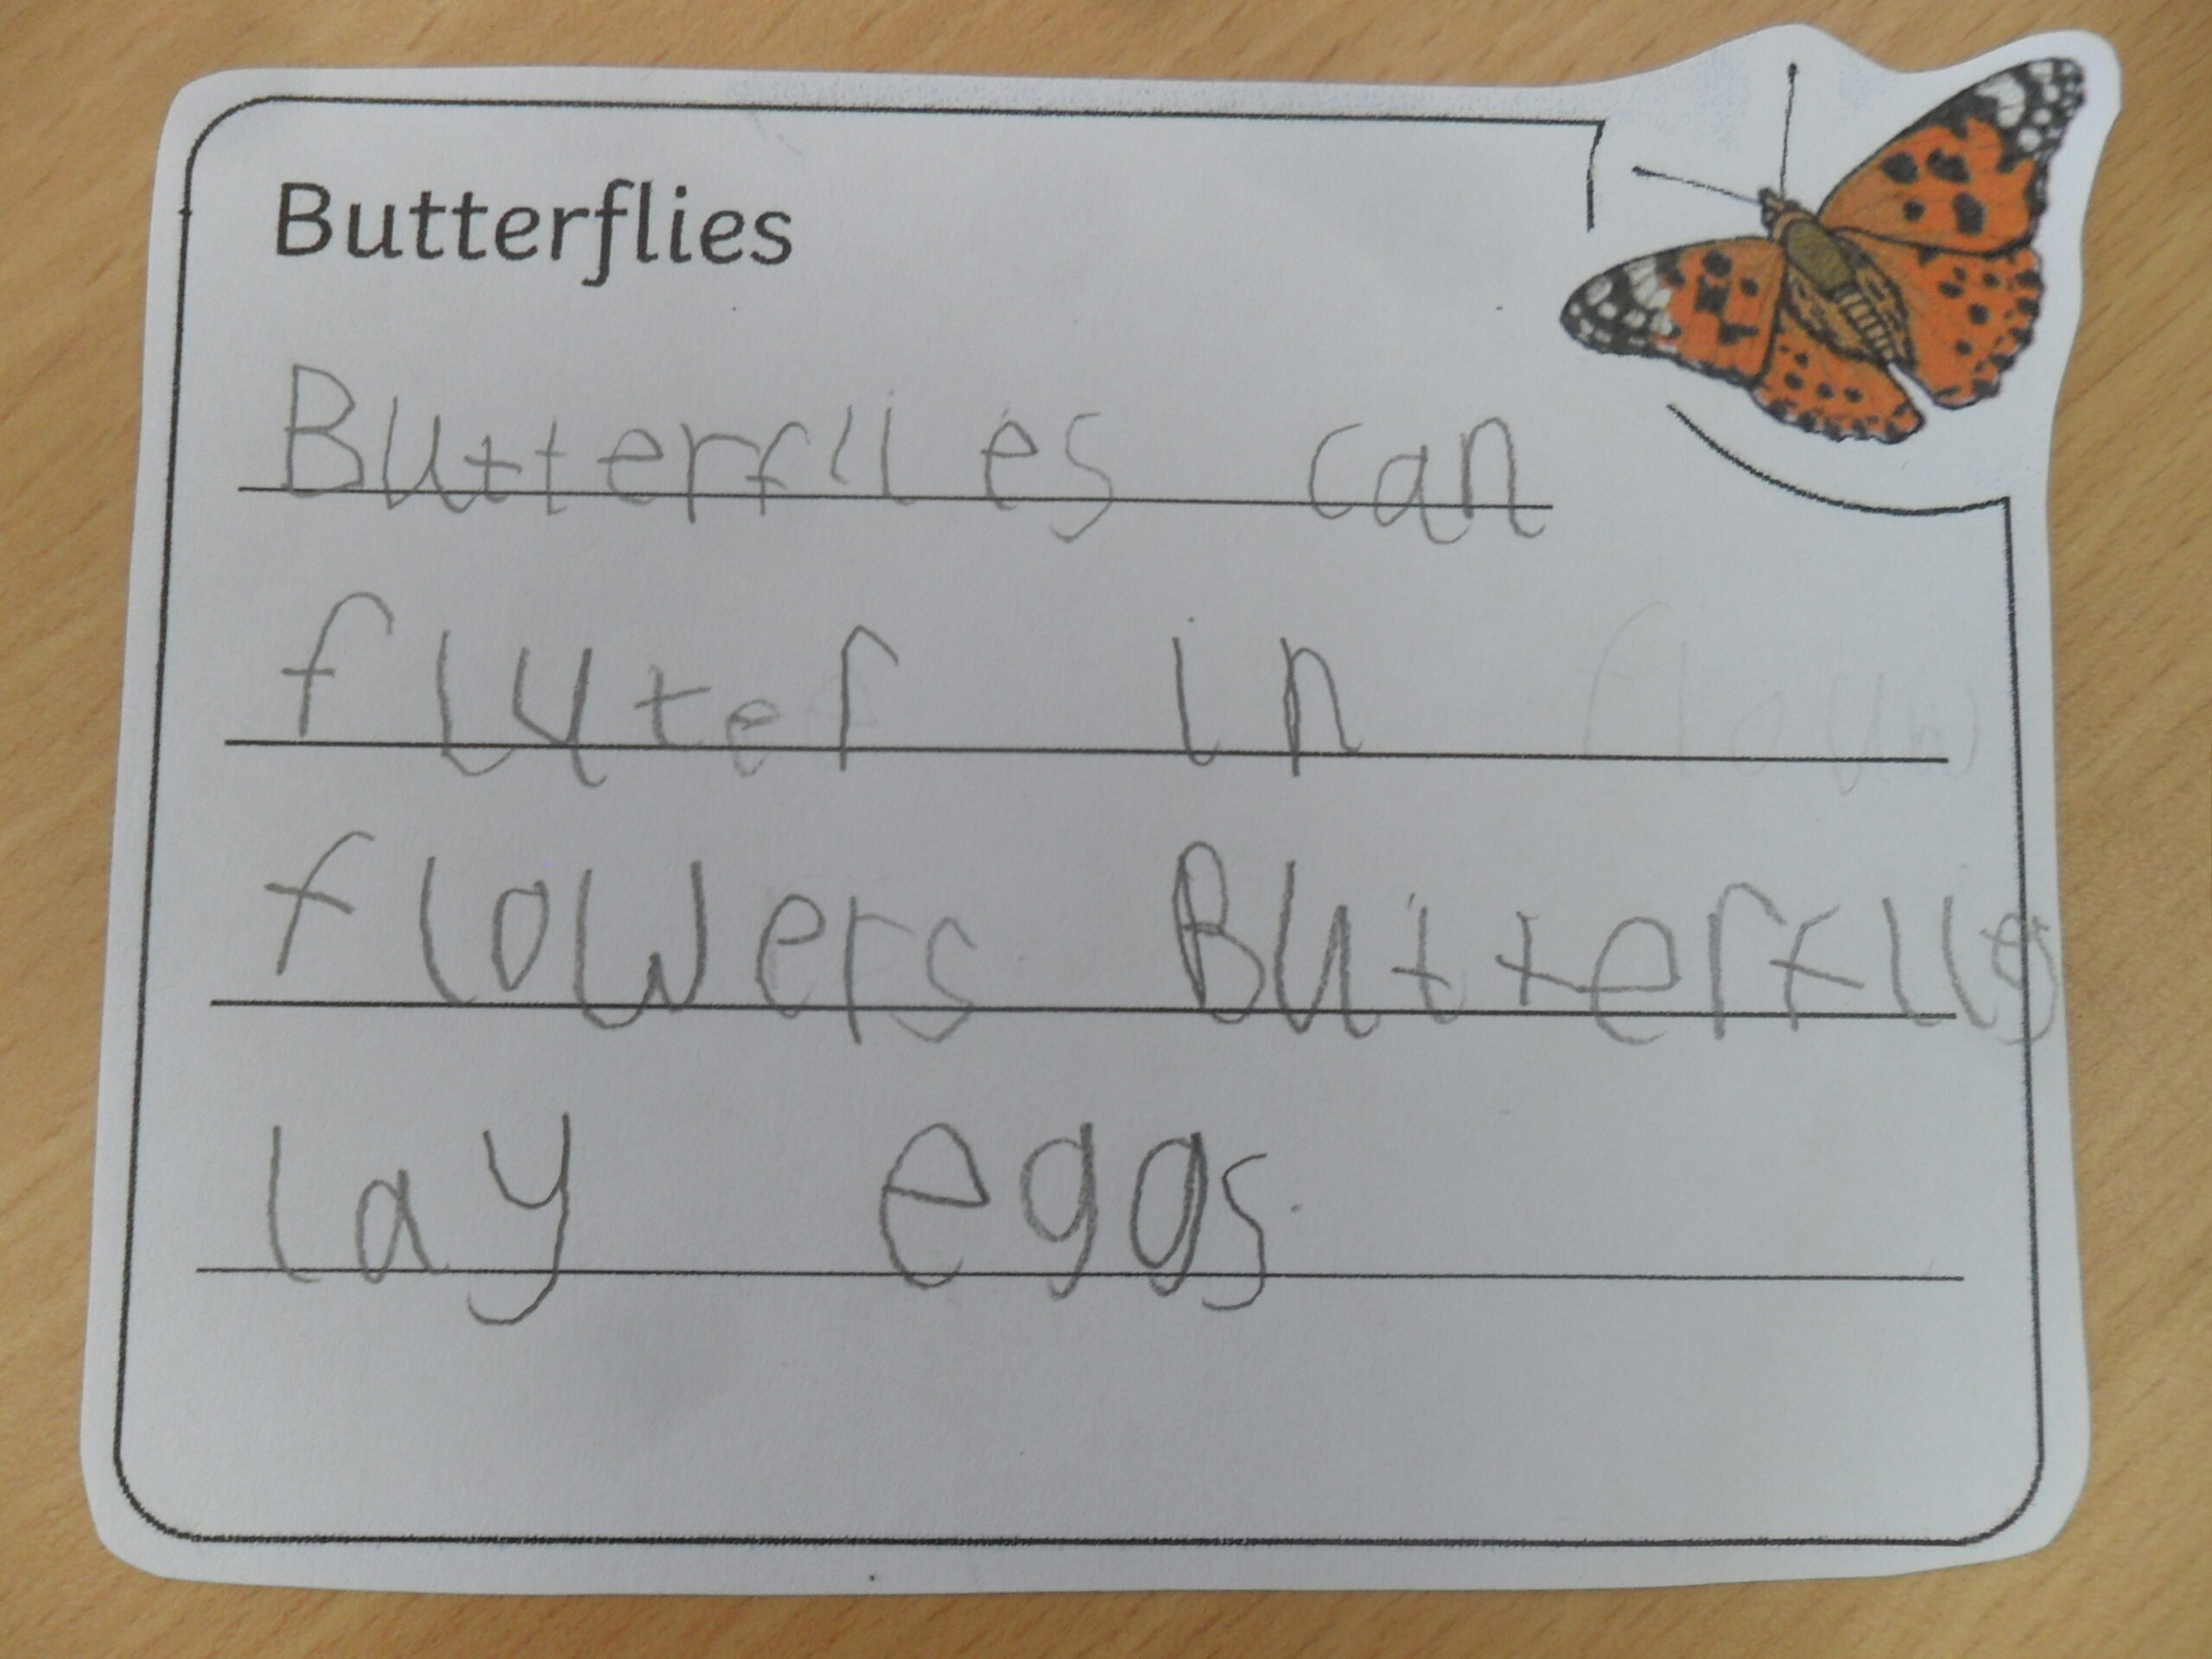 Butterflies
Butterflies can
fluter in
flowers Butterflis
lay eggs.